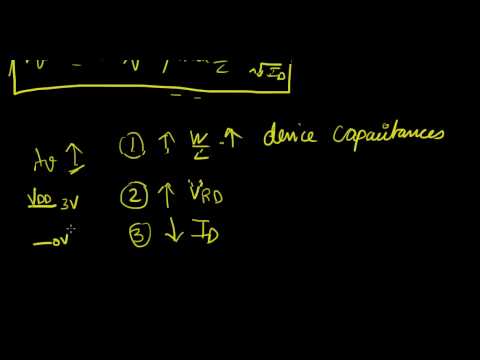 √I_D
Av ↑ ① ↑ W/L - ↑ device capacitances
VDD 3V ② ↑ V_RD
0V ③ ↓ I_D